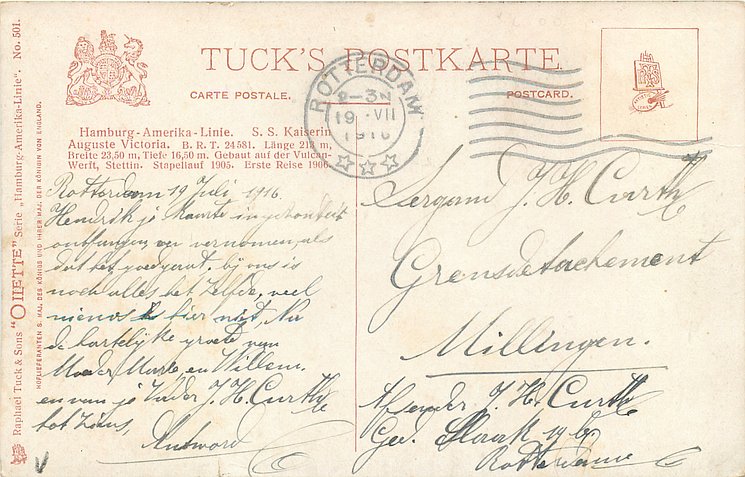 TUCK'S POSTKARTE.
CARTE POSTALE.
POSTCARD.
ROTTERDAM
2-3N
19 VII
1916
Hamburg-Amerika-Linie. S. S. Kaiserin
Auguste Victoria. B. R. T. 24581. Länge 213 m,
Breite 23,50 m, Tiefe 16,50 m. Gebaut auf der Vulcan-
Werft, Stettin. Stapellauf 1905. Erste Reise 1906
Rotterdam 19 Juli 1916
Hendrik je kaarte in gezondheit
ontfangen en vernomen als
dat het goed gaat. bij ons is
noch alles het zelfde, veel
nieuws is hier niet, Na
de hartelijke groete van
Moeder Marie en Willem.
en van je Vader J. H. Curth
tot ziens,
Antword
Sergant J. H. Curth
Grensdetachement
Millingen.
Afsender J. H. Curth
Ged. 19
Rotterdam
Raphael Tuck & Sons "OILETTE" Serie „Hamburg-Amerika-Linie". No. 501.
HOFLIEFERANTEN S. MAJ. DES KÖNIGS UND IHRER MAJ. DER KÖNIGIN VON ENGLAND.